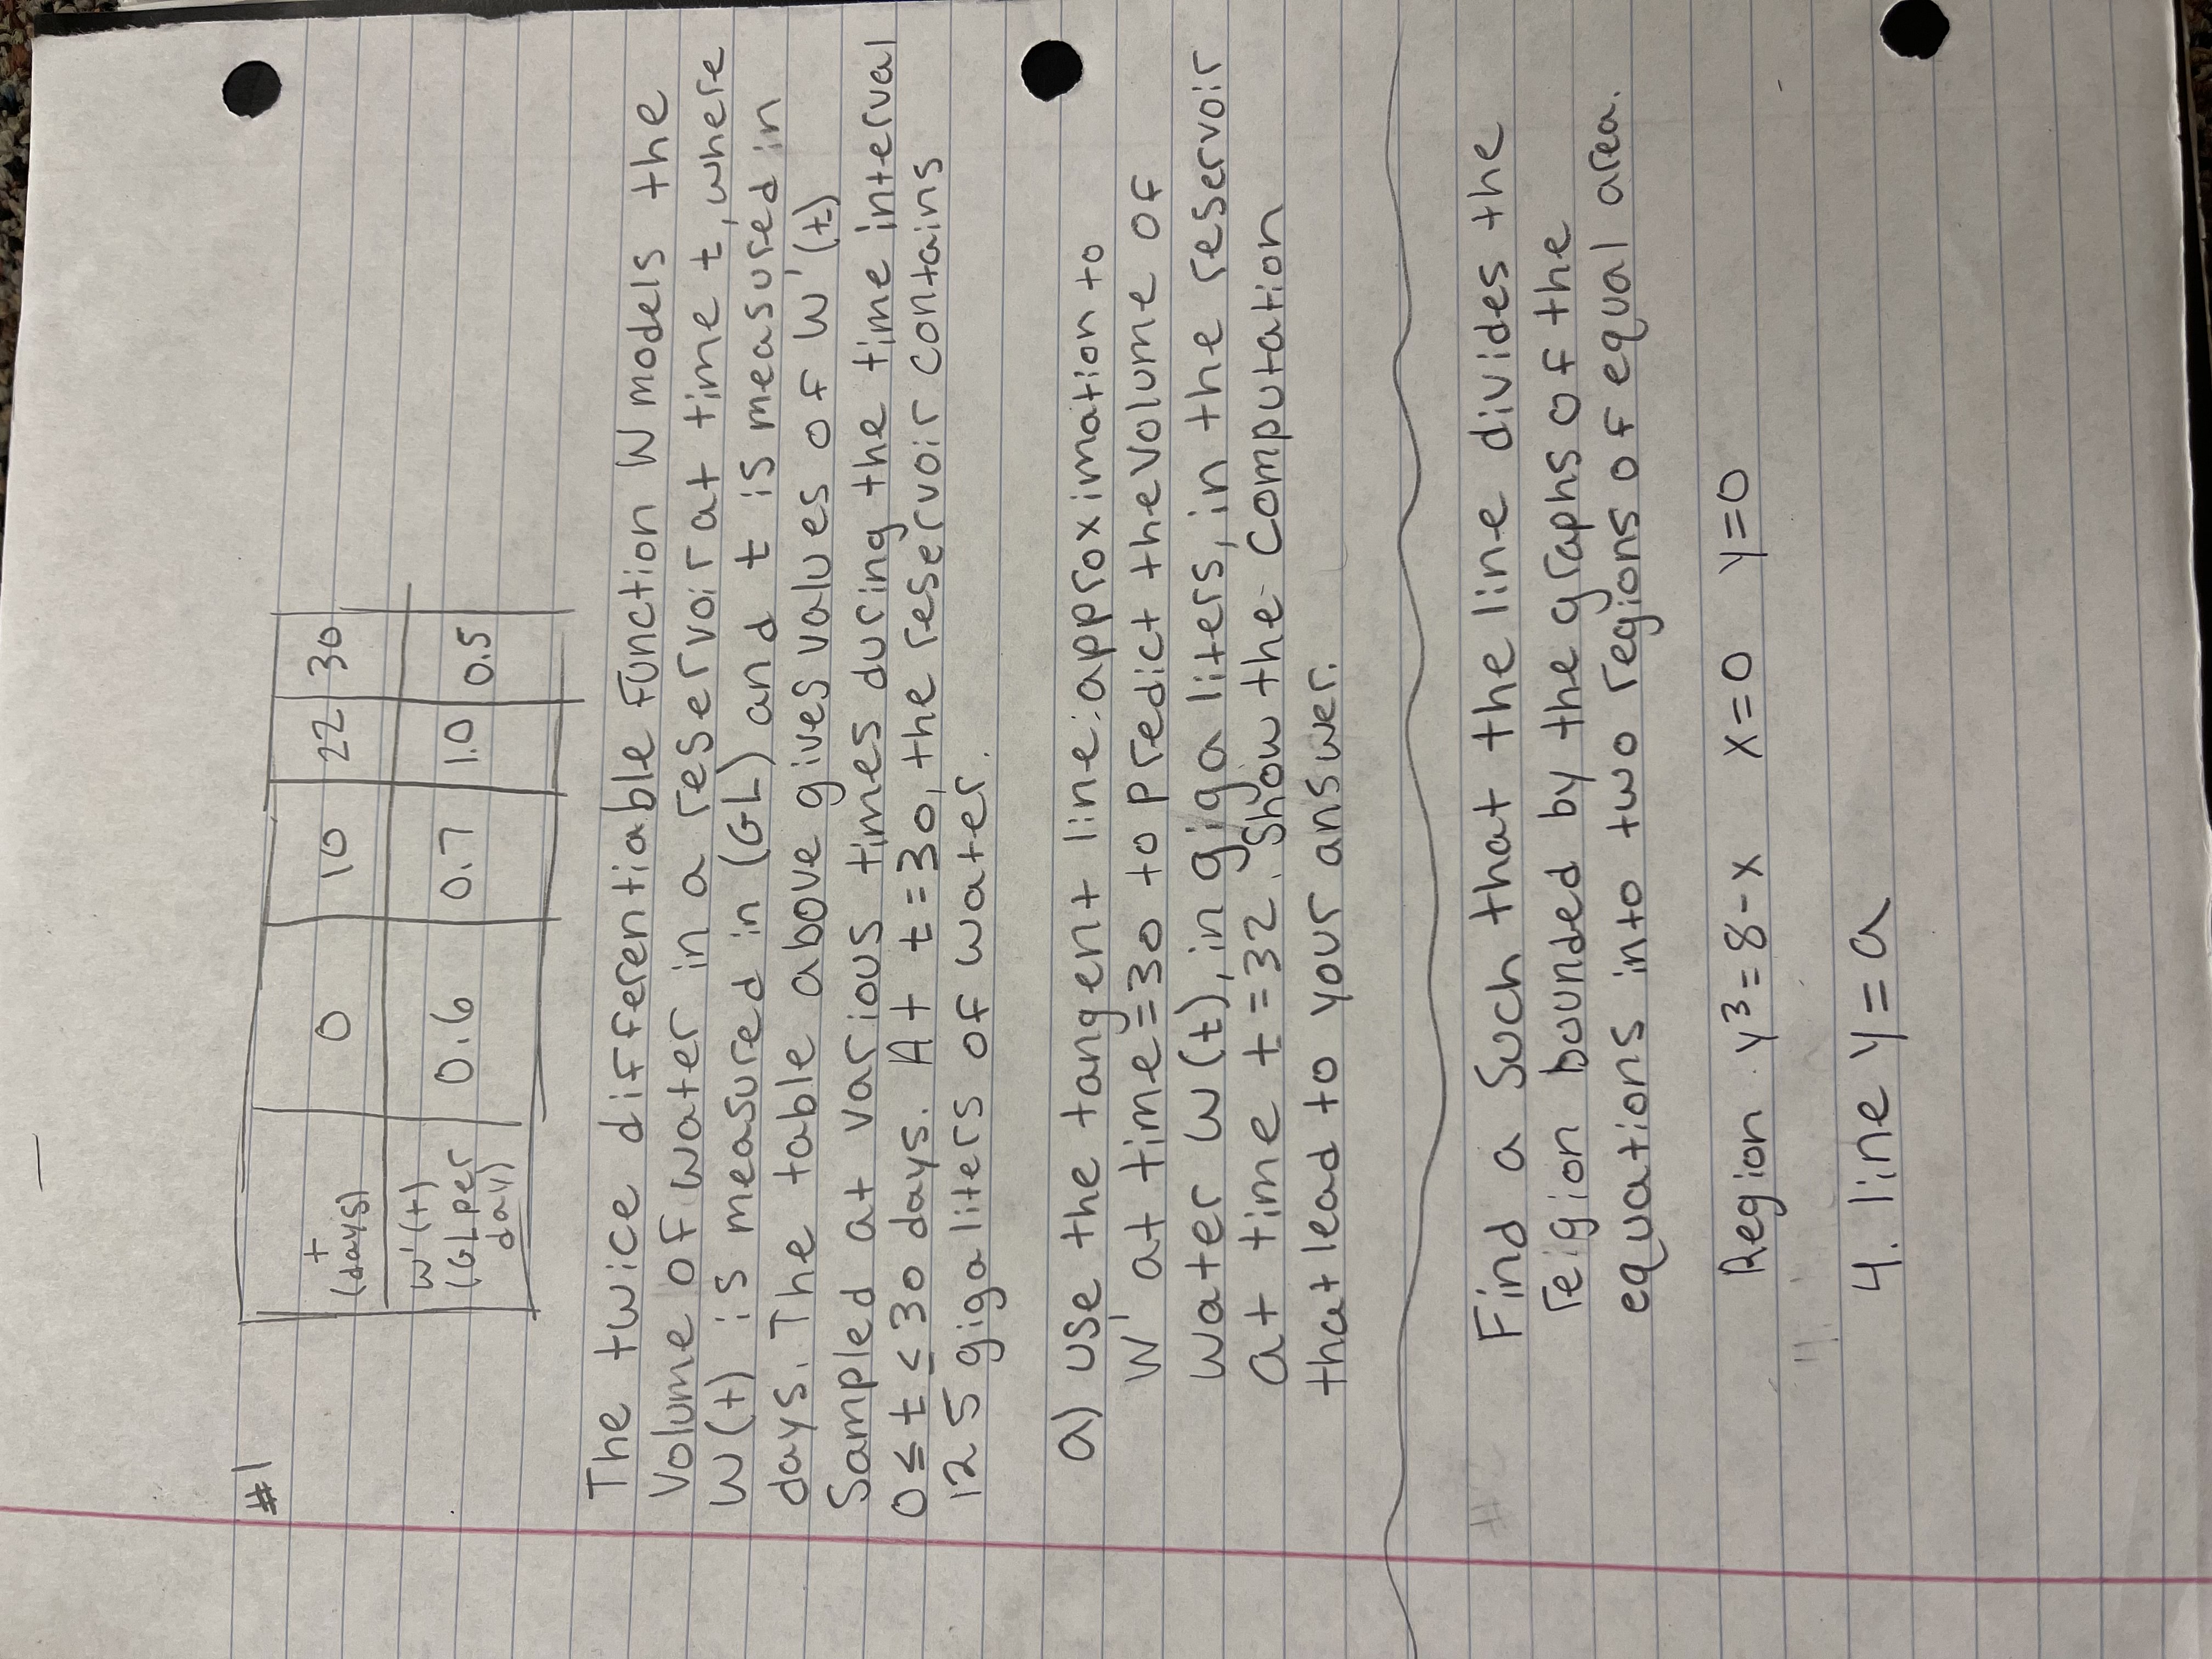 #1
t (days) 0 10 22 30
W'(t) (GL per day) 0.6 0.7 1.0 0.5
The twice differentiable function W models the
Volume of water in a reservoir at time t, where
W(t) is measured in (GL) and t is measured in
days. The table above gives values of W'(t)
Sampled at various times during the time interval
0 ≤ t ≤ 30 days. At t=30, the reservoir contains
125 giga liters of water.
a) use the tangent line approximation to
W' at time=30 to predict the volume of
water W(t), in giga liters, in the reservoir
at time t=32. Show the computation
that lead to your answer.
Find a Such that the line divides the
reigion bounded by the graphs of the
equations into two regions of equal area.
Region y³=8-x x=0 y=0
4. line y=a